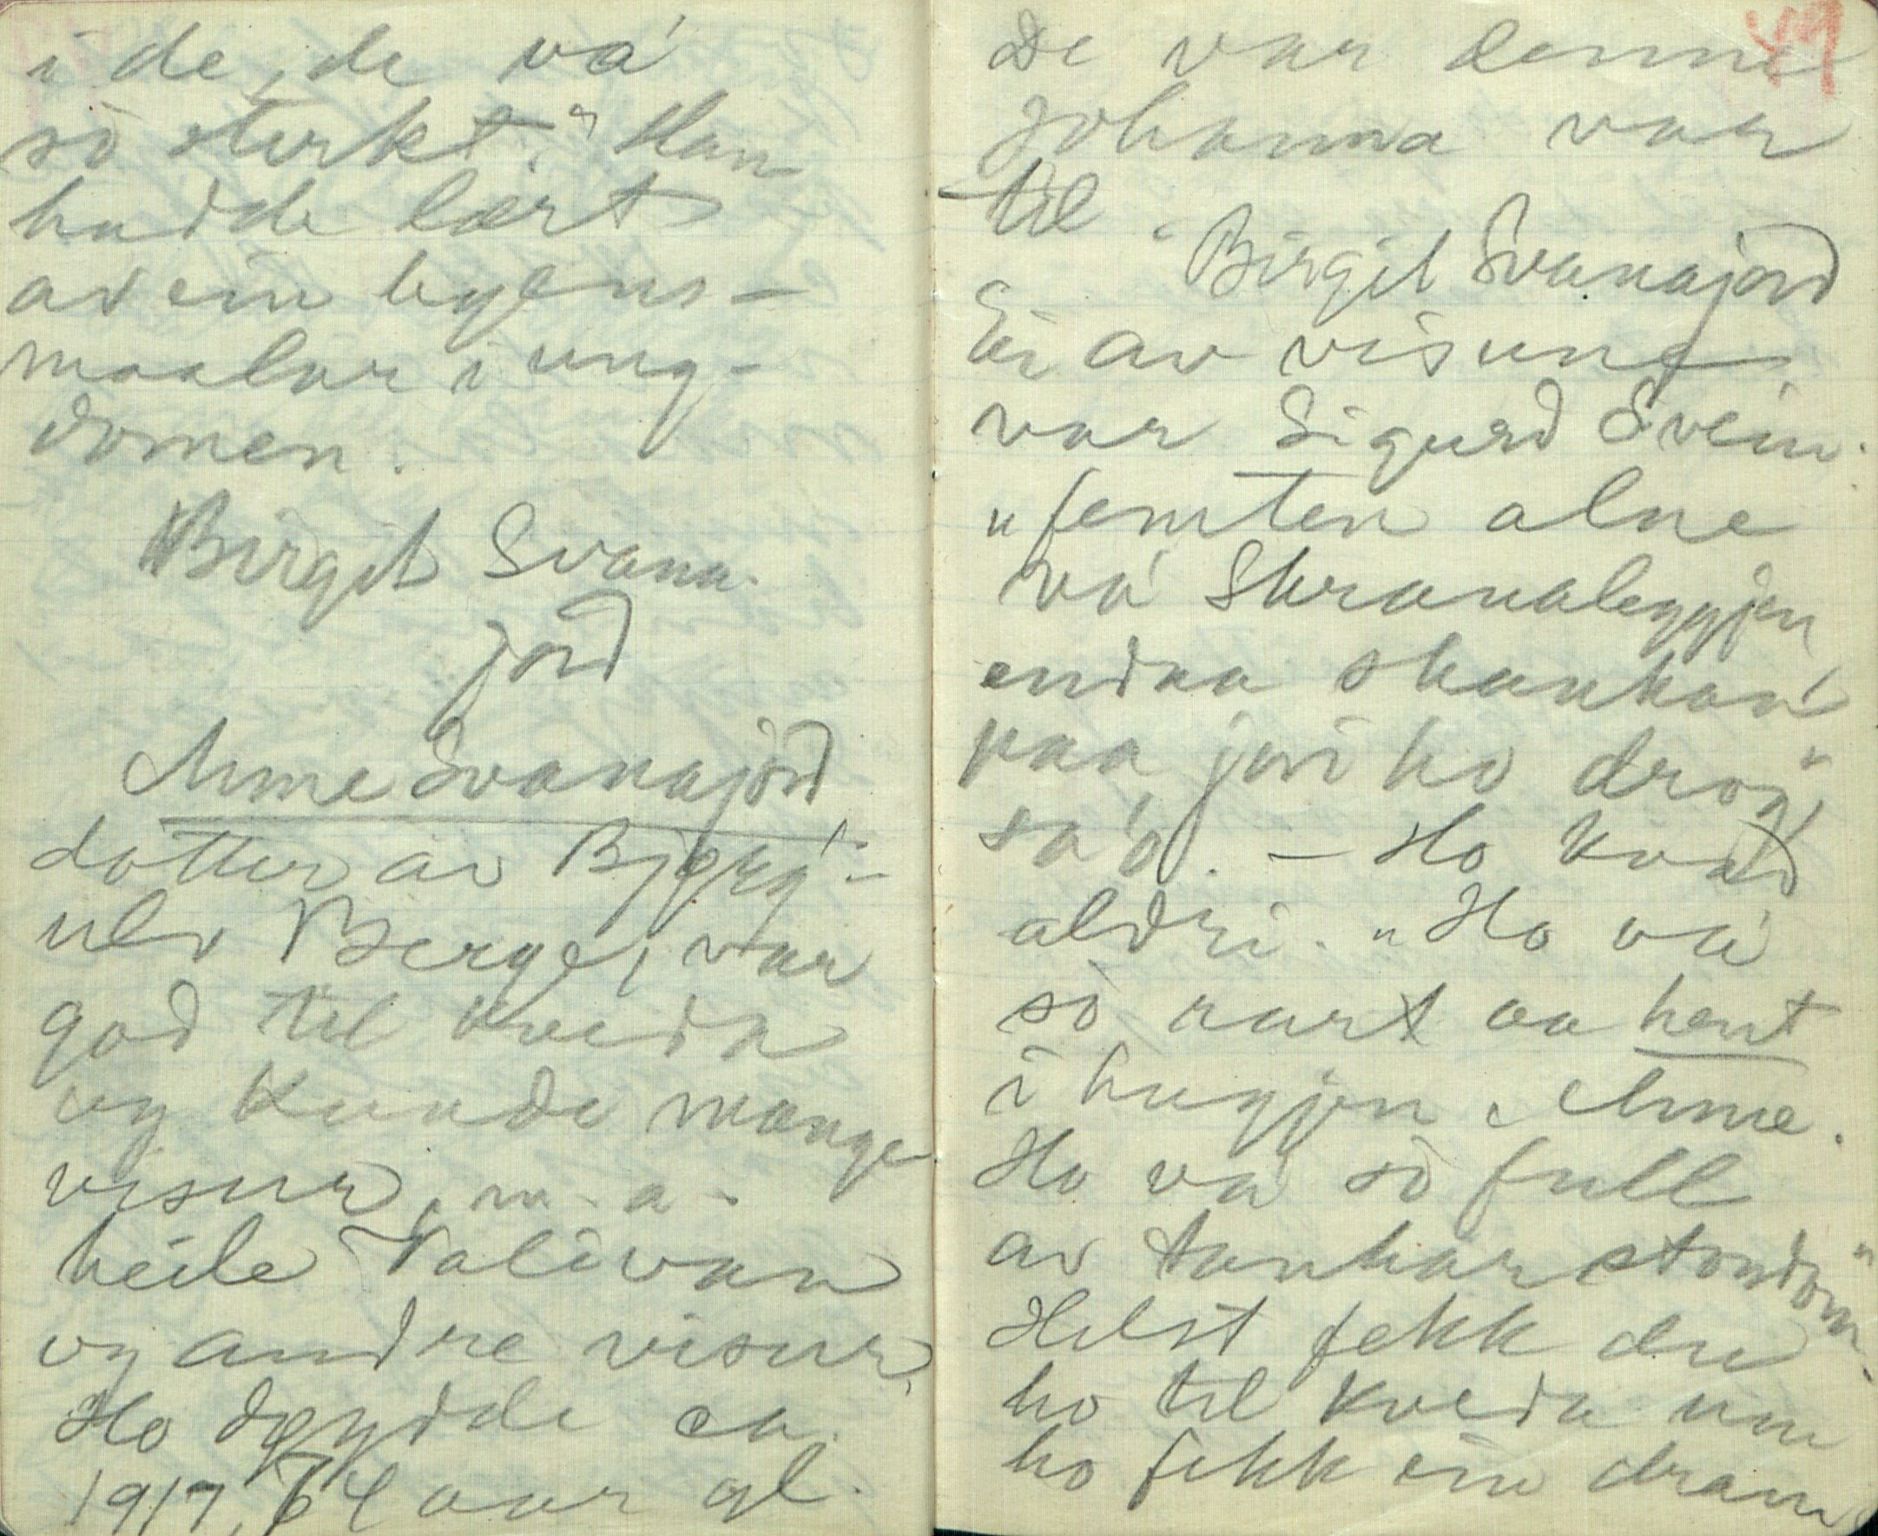 i de, de vá
sò sterkt." Han
hadde lært
av ein bygens-
maalar i ung-
domen.
Birgit Svana-
jord
Anne Svanajord
dotter av Bjørg-
ulv Berge, var
god til kveda
og kunde mange
visur, m. a.
heile Valivan
og andre visur.
Ho døydde ca.
1917, 74 aar gl.
49
De var denne
Johanna var
til.
Birgit Svanajord
Ei av visune
var Sigurd Svein.
"femten alne
vá Skranaleggjen
endaa skankan'
paa jori ho drog"
sa'o. – Ho kvad
aldri. "Ho vá
sò rart aa hent
i hugjen, Anne.
Ho vá sò full
av tankar stondom"
Helst fekk du
ho til kveda um
ho fekk ein dram